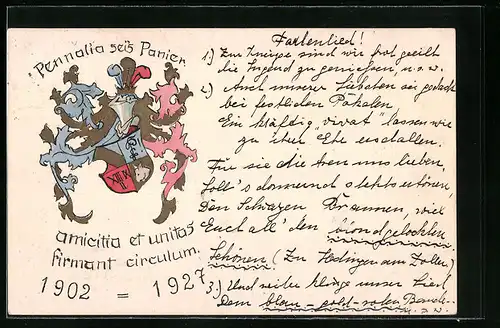 "Pennalia sei's Panier.
amicitia et unitas
firmant circulum.
1902 = 1927
Farbenlied!
1.) Zur Kneipe sind wir froh geeilt
die Jugend zu geniessen, u.s.w.
2.) Auch unserer Liebsten sei gedacht
bei festlichen Pokalen
Ein kräftig "vivat" lassen wir
zu ihrer Ehr erschallen.
Für sie die treu uns lieben,
Soll's donnernd stets ertönen,
Den Schwarzen Braunen, wie
Euch all' den blondgelockten
Schönen (Zu Hechingen am Zoller)
3.) Und weiter klinge unser Lied
Dem blau-gold-roten Bande.
u.s.w.